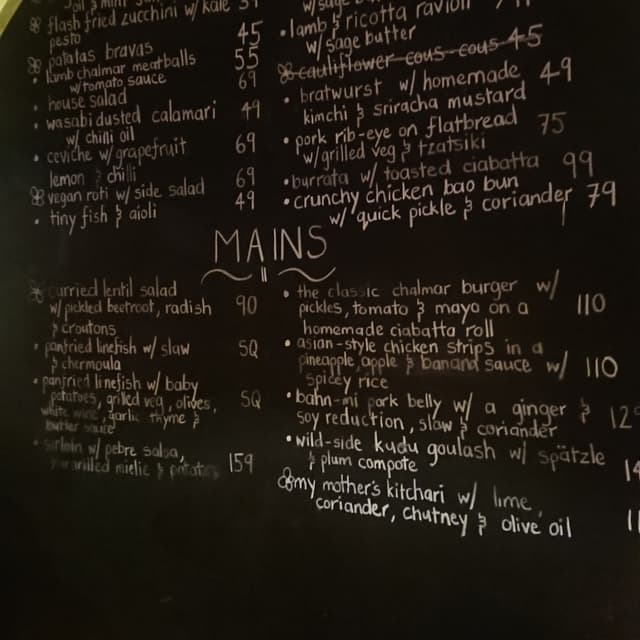 flash fried zucchini w/ kale
pesto
patatas bravas 45
lamb chalmar meatballs 55
w/ tomato sauce
house salad 69
wasabi dusted calamari 49
w/ chilli oil
ceviche w/ grapefruit 69
lemon & chilli
vegan roti w/ side salad 69
tiny fish & aioli 49
lamb & ricotta ravioli
w/ sage butter
cauliflower cous-cous 45
bratwurst w/ homemade 49
kimchi & sriracha mustard
pork rib-eye on flatbread 75
w/ grilled veg & tzatsiki
burrata w/ toasted ciabatta 99
crunchy chicken bao bun 79
w/ quick pickle & coriander
MAINS
curried lentil salad
w/ pickled beetroot, radish 90
& croutons
panfried linefish w/ slaw SQ
& chermoula
panfried linefish w/ baby
potatoes, grilled veg, olives, SQ
white wine, garlic thyme &
butter sauce
sirloin w/ pebre salsa,
grilled mielie & potatoes 159
the classic chalmar burger w/
pickles, tomato & mayo on a 110
homemade ciabatta roll
asian-style chicken strips in a
pineapple, apple & banana sauce w/ 110
spicy rice
bahn-mi pork belly w/ a ginger &
soy reduction, slaw & coriander
wild-side kudu goulash w/ spätzle
& plum compote
my mother's kitchari w/ lime,
coriander, chutney & olive oil